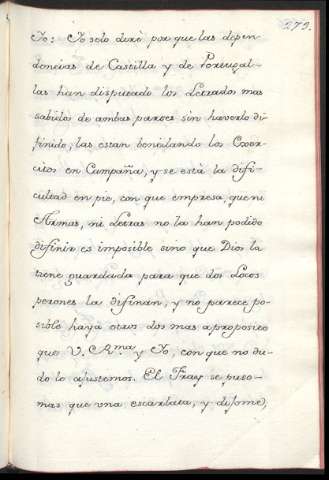 279.
Yo: Yo solo diré por que las dipen
dencias de Castilla y de Portugal-
las han disputado los Letrados mas
sabidos de ambas partes sin haverlo di-
finido; las estan bentilando los Exer-
citos en Campaña, y se está la difi-
cultad en pie, con que empresa, que ni
Armas, ni Letras no la han podido
difinir es imposible sino que Dios la
tiene guardada para que dos Locos
perones la difinan, y no parece po-
sible haya otros dos mas a proposito
que V. R.ma y Yo, con que no du-
do lo ajustemos. El Fray se puso-
mas que una escarlata, y dijome,